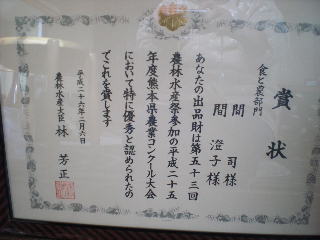 賞状
食と農部門
間 司様
間 澄子様
あなたの出品財は第五十三回
農林水産祭参加の平成二十五
年度熊本県農業コンクール大会
において特に優秀と認められたの
でこれを賞します
平成二十六年二月六日
農林水産大臣 林 芳正